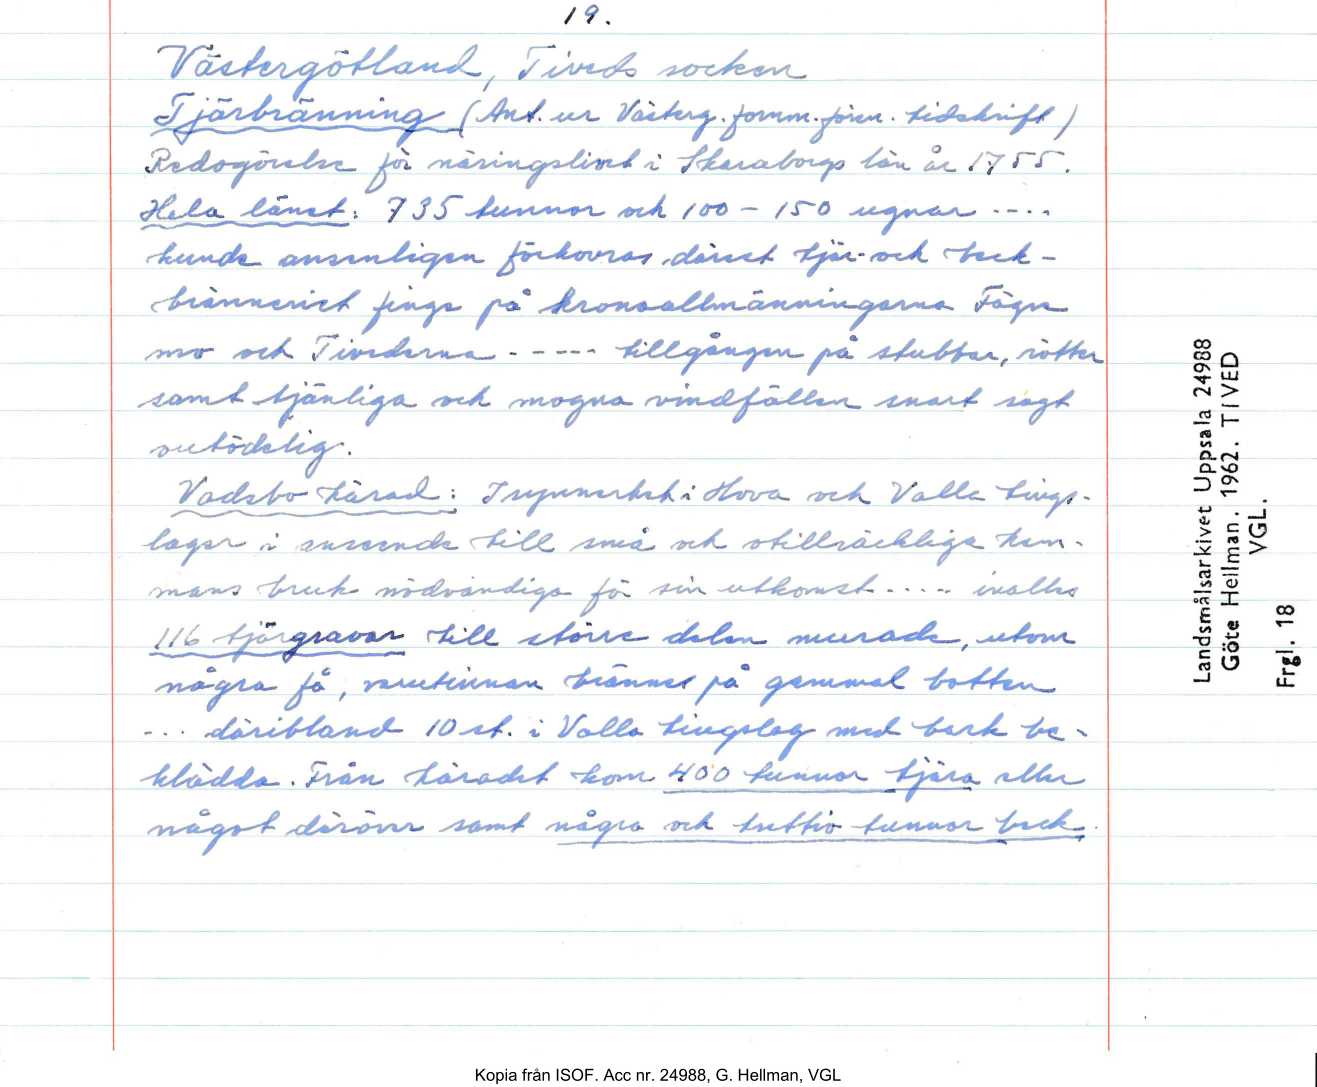 19.
Västergötland, Tiveds socken
Tjärbränning (Ant. ur Västerg. fornm. fören. tidskrift)
Redogörelse för näringslivet i Skaraborgs län år 1755.
Hela länet: 735 tunnor och 100 – 150 ugnar ----
kunde ansenligen förkovras, därest tjär- och beck-
bränneriet finge på kronoallmänningarna Fägre
mo och Tivederna ----- tillgången på stubbar, rötter
samt tjänliga och mogna vindfällen snart sagt
outödelig.
Vadsbo härad: I synnerhet i Hova och Valle tings-
lager i anseende till små och otillräckliga hem-
mans bruk nödvändiga för sin utkomst ----- inalles
116 tjärgravar till större delen murade, utom
några få, varutinnan brännes på gammal botten
--- däribland 10 st. i Valla tingslag med bark be-
klädda. Från häradet kom 400 tunnor tjära eller
något däröver samt några och trettio tunnor beck.
Landsmålsarkivet Uppsala 24988
Göte Hellman. 1962. TIVED
VGL.
Frgl. 18
Kopia från ISOF. Acc nr. 24988, G. Hellman, VGL